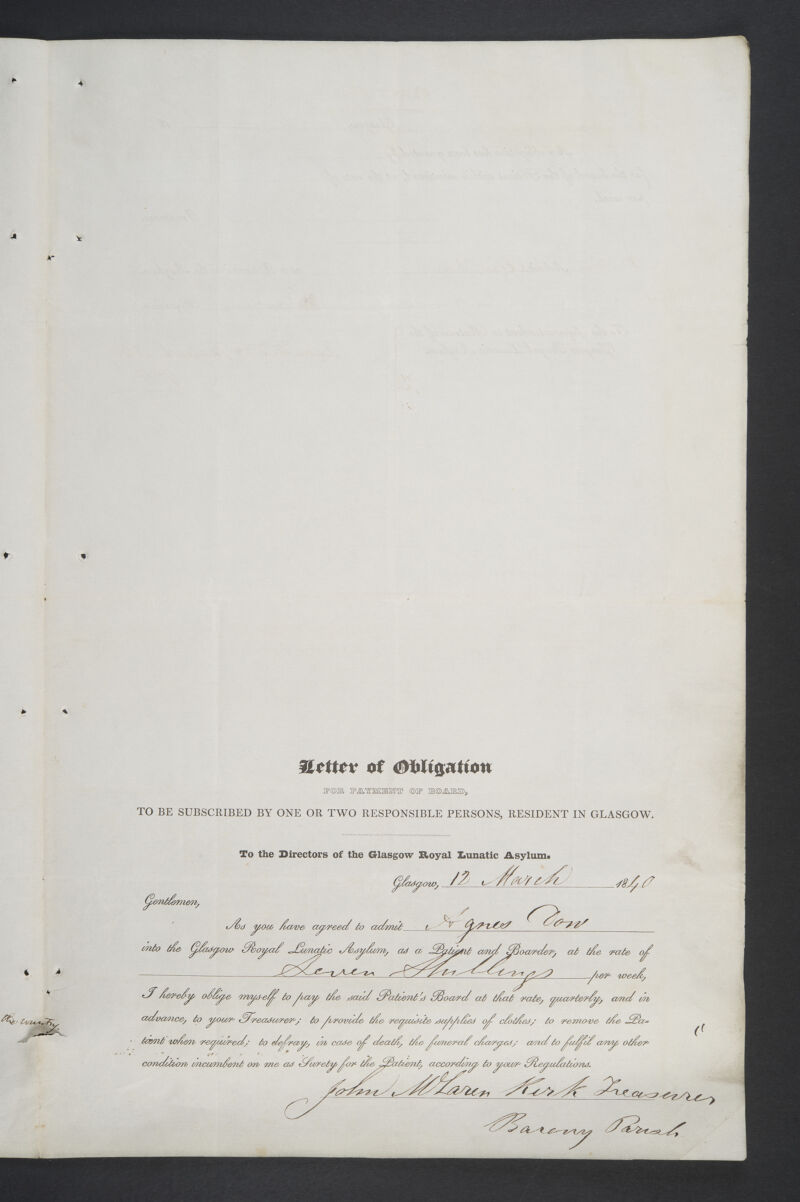 Letter of Obligation
FOR PAYMENT OF BOARD,
TO BE SUBSCRIBED BY ONE OR TWO RESPONSIBLE PERSONS, RESIDENT IN GLASGOW.
To the Directors of the Glasgow Royal Lunatic Asylum.
Glasgow, 12 March 1840
Gentlemen,
As you have agreed to admit Agnes Dow
into the Glasgow Royal Lunatic Asylum, as a Patient and Boarder, at the rate of
Seven Shillings per week,
I hereby oblige myself to pay the said Patient's Board at that rate, quarterly, and in
advance, to your Treasurer; to provide the requisite supplies of clothes; to remove the Pa-
tient when required; to defray, in case of death, the funeral charges; and to fulfil any other
condition incumbent on me as Surety for the Patient, according to your Regulations.
John McLaren Kirk Treasurer
Barony Parish